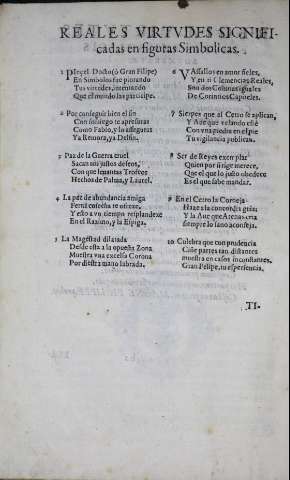 REALES VIRTVDES SIGNIFI-
cadas en figuras Simbolicas.
1 PIncel Docto (ò Gran Filipe)
En Simbolos fue pintando
Tus virtudes, intentando
Que el mundo las participe.
2 Por conseguir bien el fin
Con sossiego te apresuras
Como Fabio, y lo asseguras
Ya Remora, ya Delfin.
3 Paz de la Guerra cruel
Sacan tus justos desseos,
Con que leuantas Trofeos
Hechos de Palma, y Laurel.
4 La paz de abundancia amiga
Fertil cosecha te ofrece,
Y esto a vn tiempo resplandexe
En el Razimo, y la Espiga.
5 La Magestad dilatada
Desde esta a la opuesta Zona
Muestra vna excelsa Corona
Por diestra mano labrada.
6 VAssallos en amor fieles,
Y en ti Clemencias Reales,
Son dos Colunas iguales
De Corintios Capiteles.
7 Sierpes que al Cetro se aplican,
Y Aue que velando esté
Con vna piedra en el pie
Tu vigilancia publican.
8 Ser de Reyes exemplar
Quien por si regir merece,
Que el que lo justo obedece
Es el que sabe mandar.
9 En el Cetro la Corneja
Haze a la concordia guia;
Y la Aue que Atenas cria
siempre lo sano aconseja.
10 Culebra que con prudencia
Ciñe partes tan distantes
muestra en casos inconstantes,
Gran Felipe, tu esperiencia.
TI-